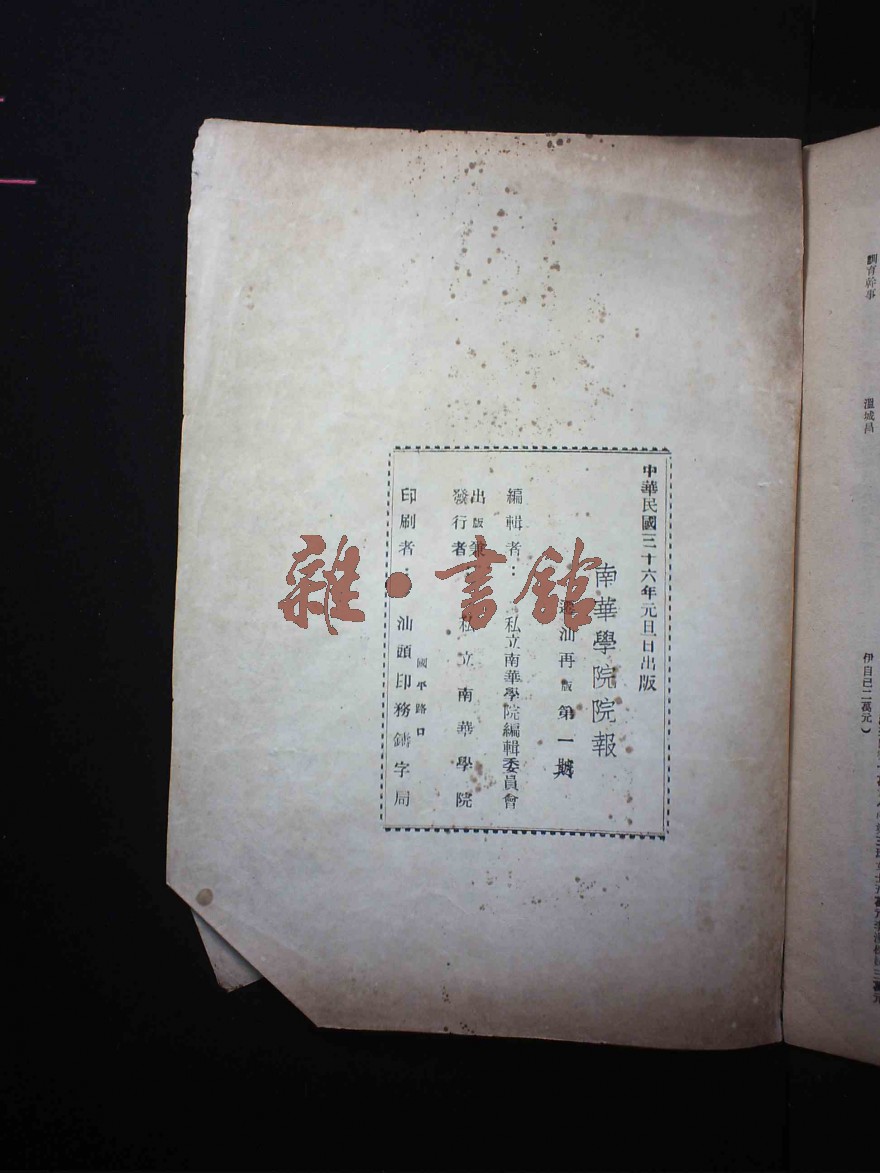 中華民國三十六年元旦日出版
南華學院院報
遷汕再版第一號
編輯者：私立南華學院編輯委員會
出版兼
發行者：私立南華學院
國平路口
印刷者：汕頭印務鑄字局
雜·書館
訓育幹事　溫城昌
伊自己二萬元）